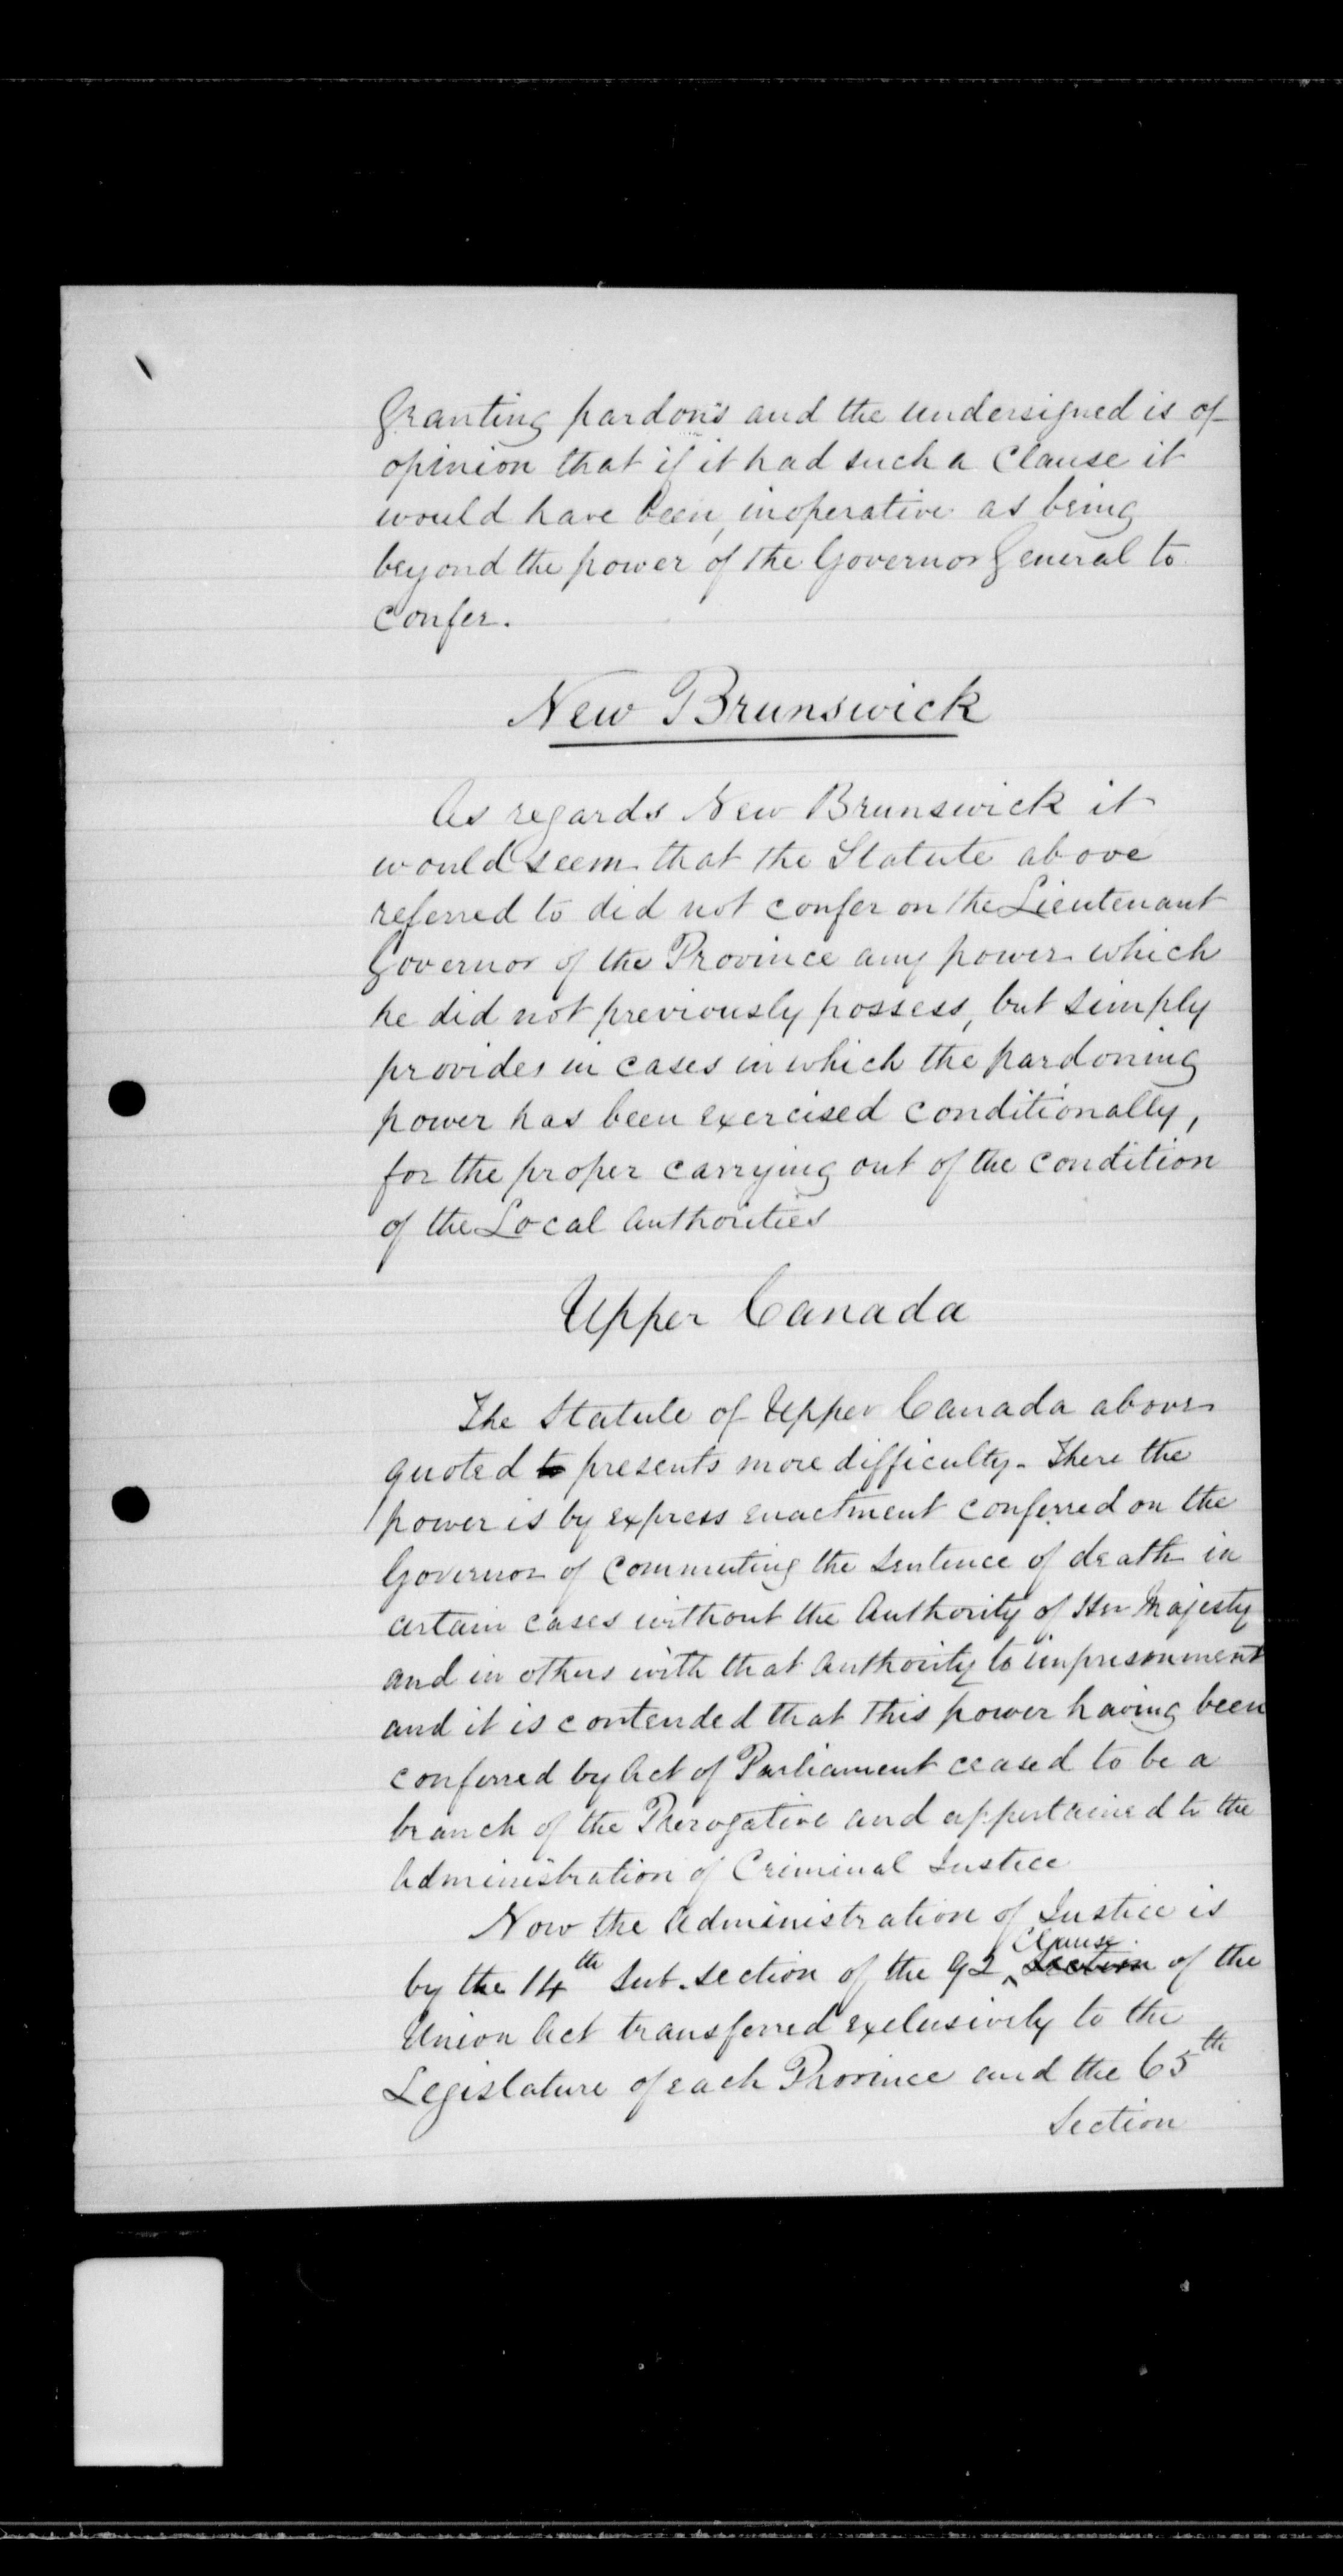 Granting pardons and the undersigned is of
opinion that if it had such a Clause it
would have been, inoperative as being
beyond the power of the Governor General to
confer.
New Brunswick
As regards New Brunswick it
would seem that the Statute above
referred to did not confer on the Lieutenant
Governor of the Province any power which
he did not previously possess, but simply
provides in cases in which the pardoning
power has been exercised conditionally,
for the proper carrying out of the condition
of the Local Authorities
Upper Canada
The Statute of Upper Canada above
quoted to presents more difficulty. There the
power is by express enactment conferred on the
Governor of commuting the Sentence of death in
certain cases without the Authority of Her Majesty
and in others with that authority to imprisonment
and it is contended that this power having been
conferred by Act of Parliament ceased to be a
branch of the Prerogative and appertained to the
Administration of Criminal Justice
Now the Administration of Justice is
by the 14th Sub. section of the 92 Clause Section of the
Union Act transferred exclusively to the
Legislature of each Province and the 65th
Section